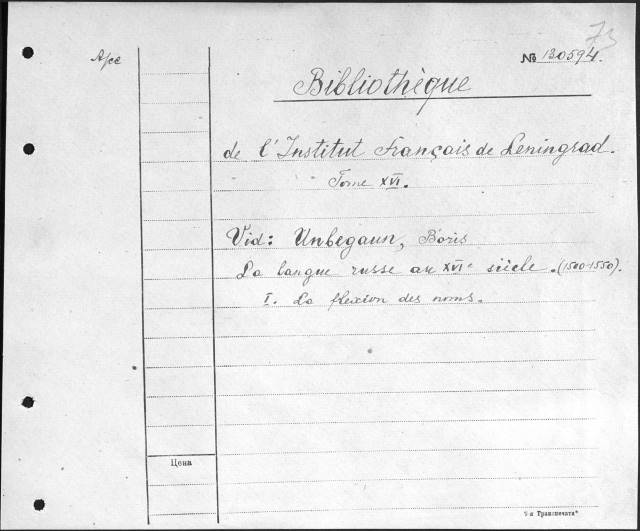 73
Арс
№ 130594.
Bibliothèque
de l'Institut Français de Leningrad.
Tome XVI.
Vid: Unbegaun, Boris
La langue russe au XVIe siècle. (1500-1550).
I. La flexion des noms.
Цена
"я Транспечати"